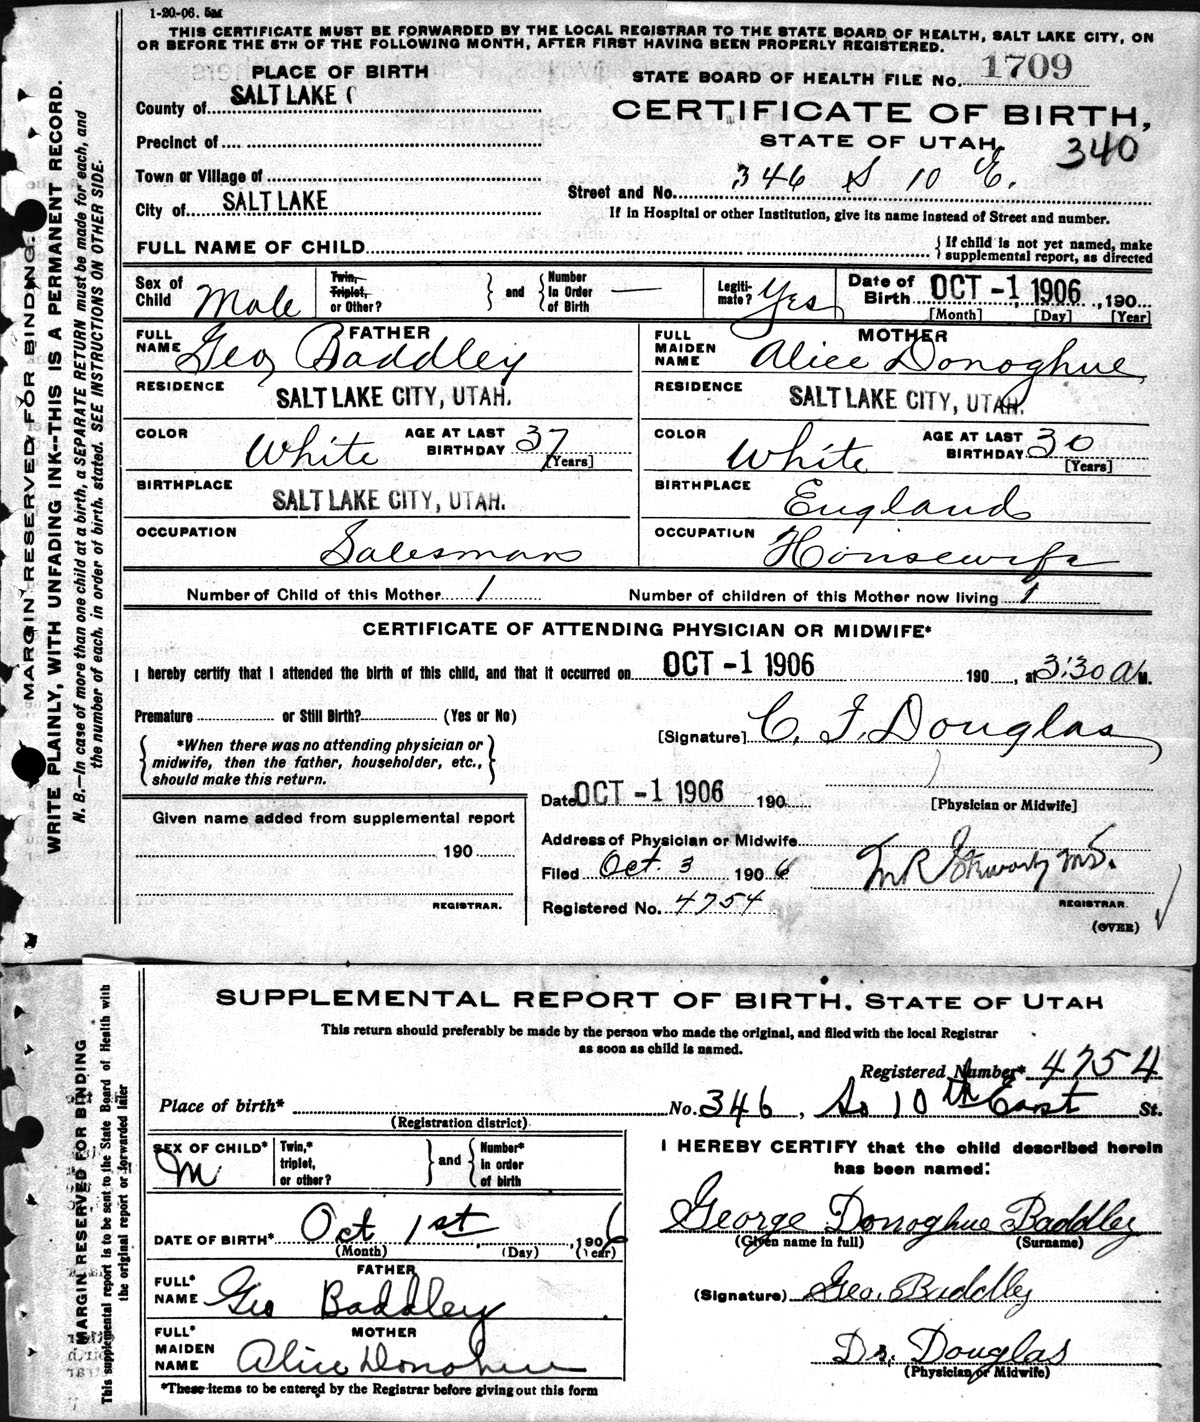 1-20-06. 5M
THIS CERTIFICATE MUST BE FORWARDED BY THE LOCAL REGISTRAR TO THE STATE BOARD OF HEALTH, SALT LAKE CITY, ON
OR BEFORE THE 5TH OF THE FOLLOWING MONTH, AFTER FIRST HAVING BEEN PROPERLY REGISTERED.
PLACE OF BIRTH
STATE BOARD OF HEALTH FILE No. 1709
County of SALT LAKE C
CERTIFICATE OF BIRTH,
Precinct of
STATE OF UTAH.
340
Town or Village of
Street and No. 346 S 10 E.
City of SALT LAKE
If in Hospital or other Institution, give its name instead of Street and number.
FULL NAME OF CHILD
{ If child is not yet named, make
supplemental report, as directed
Sex of Child Male
Twin, Triplet, or Other? } and { Number In Order of Birth —
Legiti-mate? Yes
Date of Birth OCT -1 1906, 190
[Month] [Day] [Year]
FATHER
FULL NAME Geo Baddley
MOTHER
FULL MAIDEN NAME Alice Donoghue
RESIDENCE SALT LAKE CITY, UTAH.
RESIDENCE SALT LAKE CITY, UTAH.
COLOR White AGE AT LAST BIRTHDAY 37 [Years]
COLOR White AGE AT LAST BIRTHDAY 30 [Years]
BIRTHPLACE SALT LAKE CITY, UTAH.
BIRTHPLACE England
OCCUPATION Salesman
OCCUPATION Housewife
Number of Child of this Mother 1 Number of children of this Mother now living 1
CERTIFICATE OF ATTENDING PHYSICIAN OR MIDWIFE*
I hereby certify that I attended the birth of this child, and that it occurred on OCT -1 1906 190 , at 3:30 A M.
Premature or Still Birth? (Yes or No)
[Signature] C. F. Douglas
{ *When there was no attending physician or
midwife, then the father, householder, etc.,
should make this return. }
Date OCT -1 1906 190
[Physician or Midwife]
Given name added from supplemental report
190
REGISTRAR.
Address of Physician or Midwife
Filed Oct. 3 1906
M R Stewart M D.
Registered No. 4754
REGISTRAR.
(OVER)
MARGIN RESERVED FOR BINDING.
WRITE PLAINLY, WITH UNFADING INK--THIS IS A PERMANENT RECORD.
N. B.—In case of more than one child at a birth, a SEPARATE RETURN must be made for each, and
the number of each, in order of birth, stated. SEE INSTRUCTIONS ON OTHER SIDE.
SUPPLEMENTAL REPORT OF BIRTH. STATE OF UTAH
This return should preferably be made by the person who made the original, and filed with the local Registrar
as soon as child is named.
Registered Number* 4754
Place of birth* No. 346, So 10th East St.
(Registration district)
SEX OF CHILD* M
Twin,* triplet, or other? } and { Number* in order of birth
I HEREBY CERTIFY that the child described herein
has been named:
George Donoghue Baddley
(Given name in full) (Surname)
DATE OF BIRTH* Oct 1st, 1906
(Month) (Day) (Year)
FATHER
FULL* NAME Geo Baddley
(Signature) Geo. Baddley
MOTHER
FULL* MAIDEN NAME Alice Donoghue
Dr. Douglas
(Physician or Midwife)
*These items to be entered by the Registrar before giving out this form
MARGIN RESERVED FOR BINDING
This supplemental report is to be sent to the State Board of Health with
the original report or forwarded later